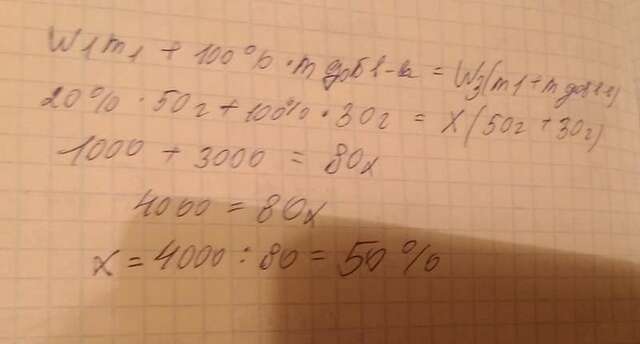 W₁m₁ + 100% · m доб в-ва = W₃(m₁ + m доб в-в)
20% · 50г + 100% · 30г = X(50г + 30г)
1000 + 3000 = 80x
4000 = 80x
x = 4000 : 80 = 50%